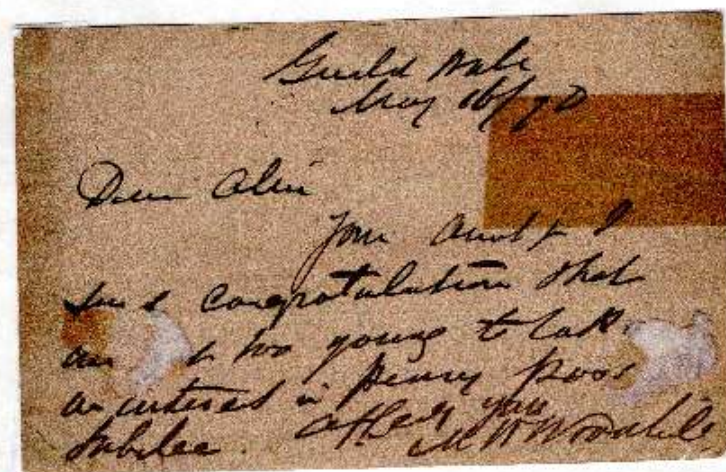 Guild Hall
May 16/90
Dear Alice
Your Aunt & I
send congratulation that
are t too young to take
an interest in penny post
Jubilee. Affecy yours